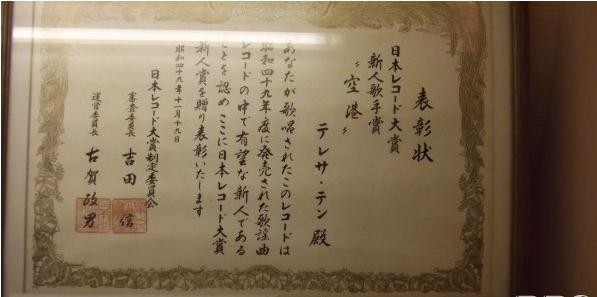 表彰状
テレサ・テン 殿
日本レコード大賞
新人歌手賞
〝空港〟
あなたが歌唱されたこのレコードは
昭和四十九年度に発売された歌謡曲
レコードの中で有望な新人である
ことを認め ここに日本レコード大賞
新人賞を贈り表彰いたします
昭和四十九年十一月十九日
日本レコード大賞制定委員会
審査委員長 吉田 信
運営委員長 古賀政男